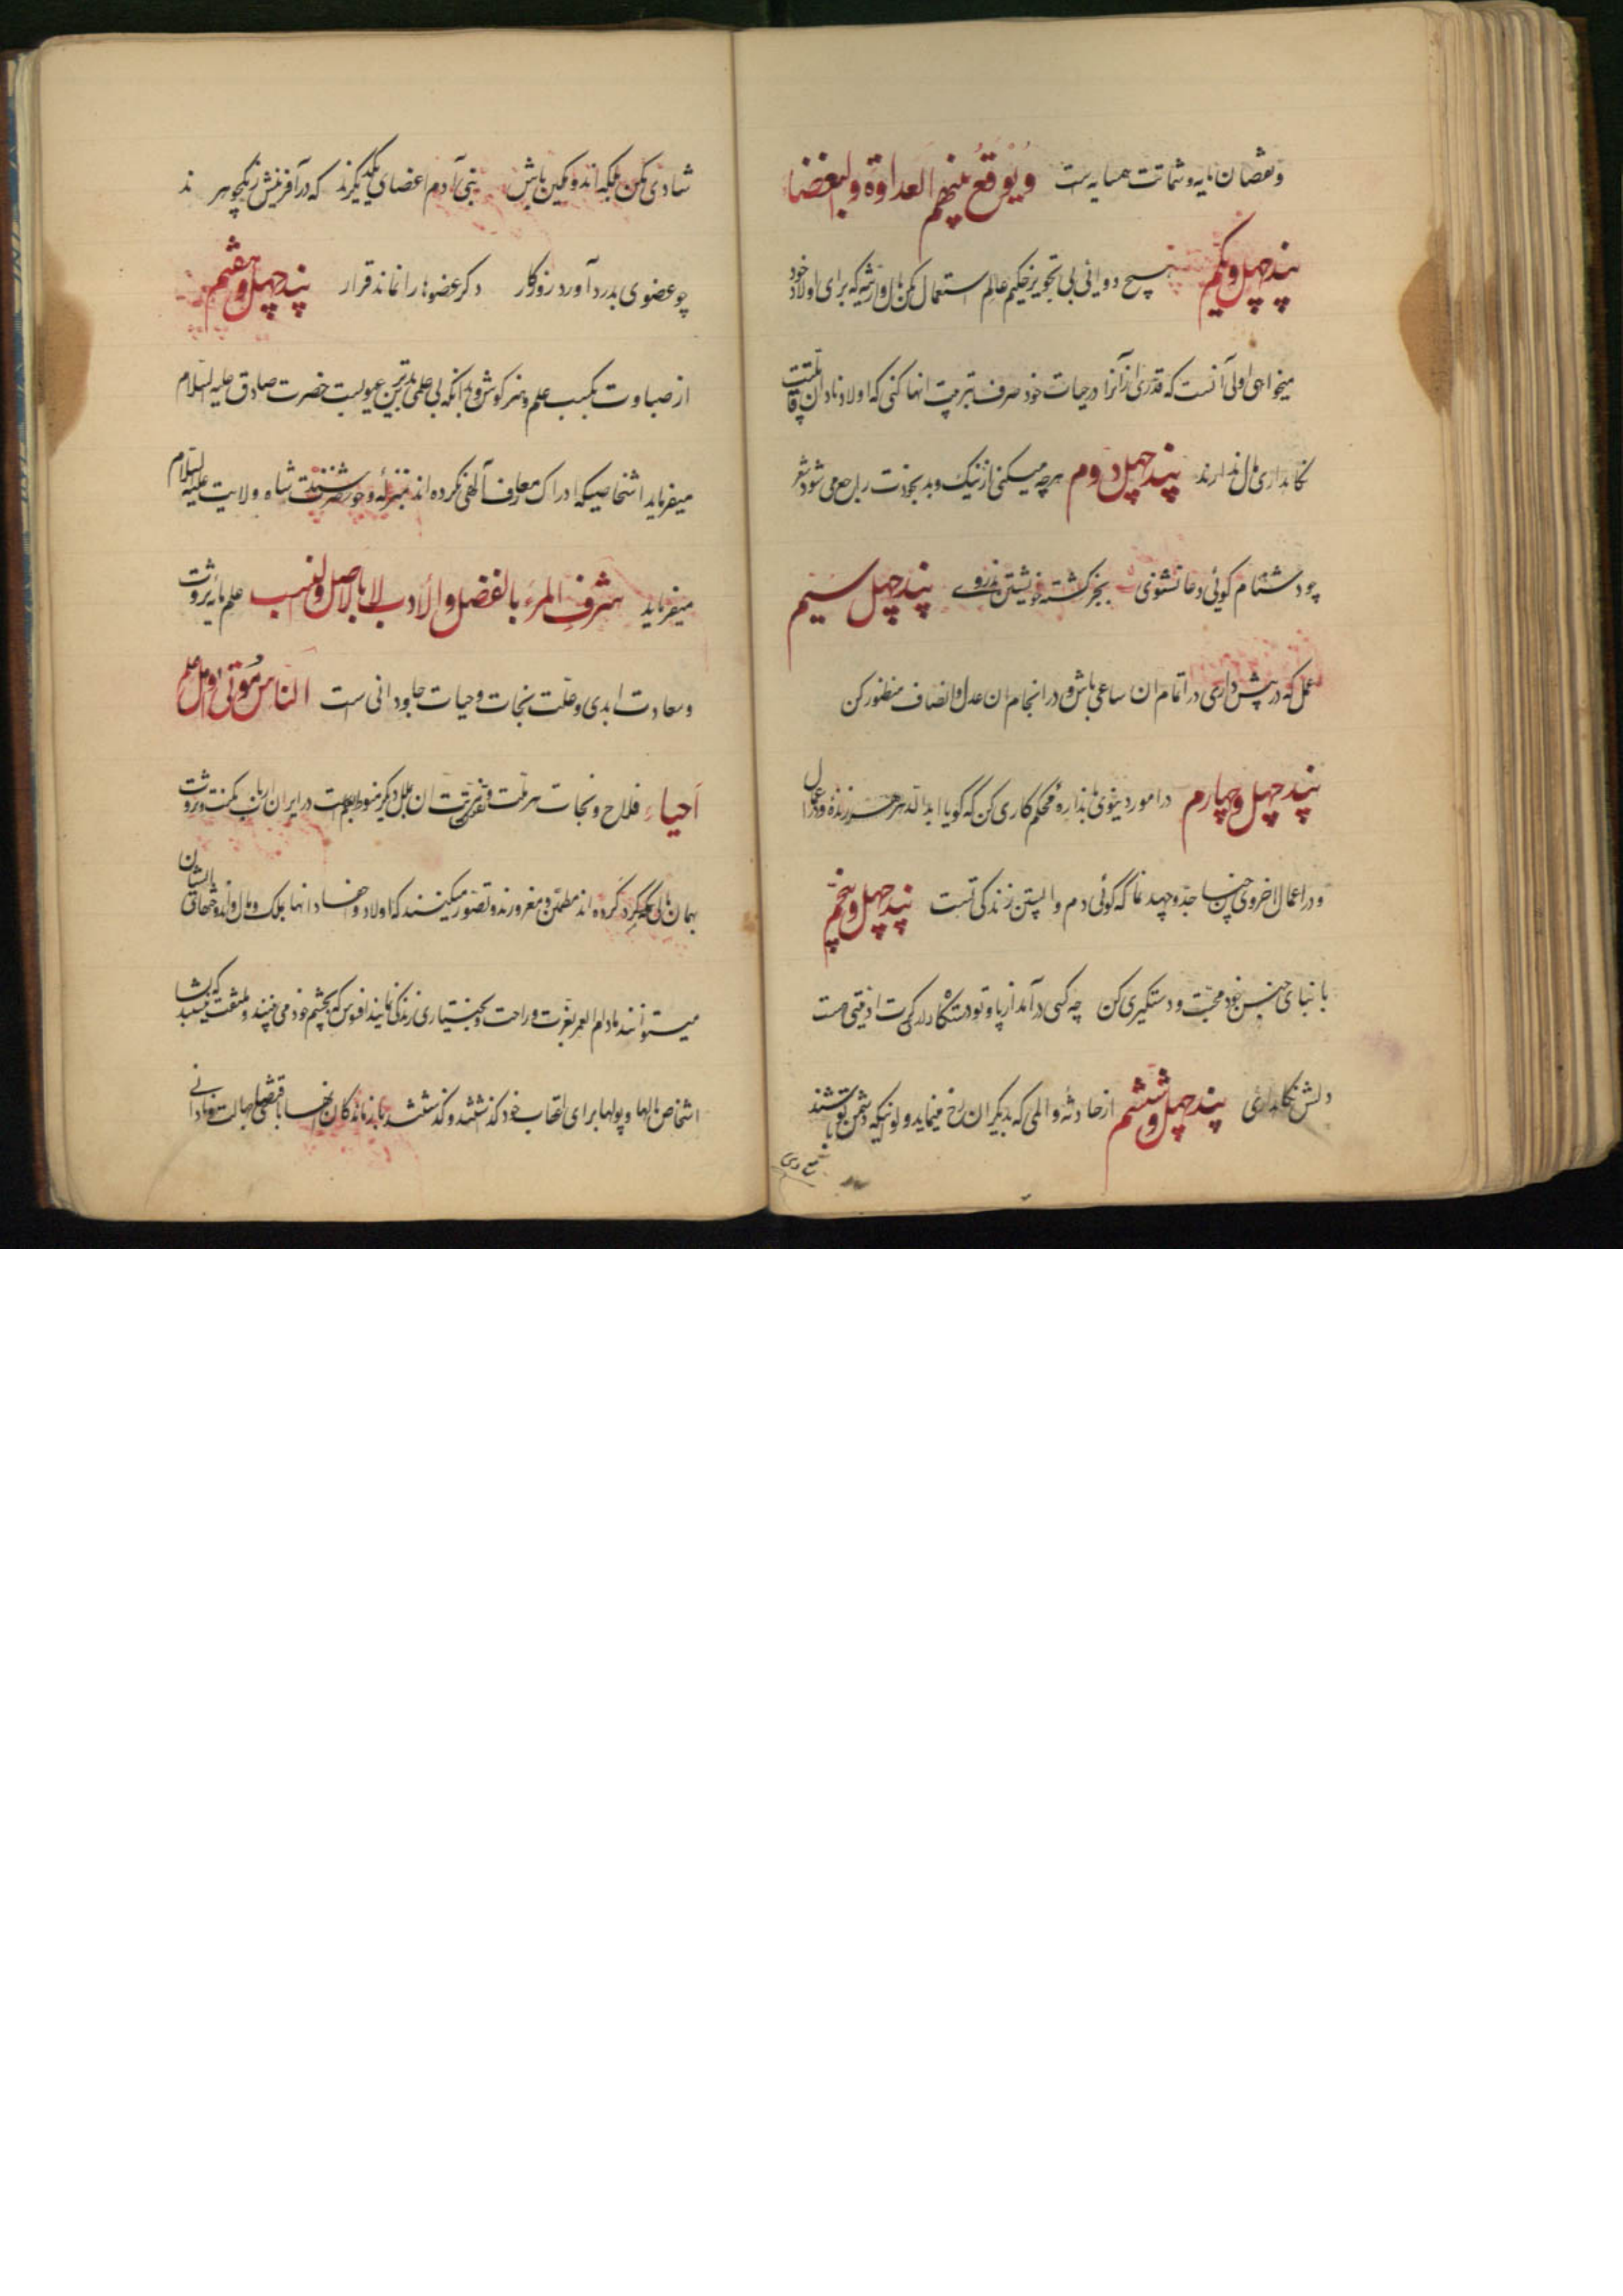 و نقصان مایه و شماتت همسایه است ویوقع بینهم العداوة والبغضا
پند چهل ویکم هیچ دوائی بی تجویز حکیم عالم استعمال مکن مال وارثیه که برای اولاد خود
میخواهی اولی آنست که قدری از آنرا در حیات خود صرف تربیت انها کنی که اولاد نادان قابلیت
نگاهداری مال ندارند پند چهل دوم هرچه میکنی از نیک و بد بخودت راجع می شود شعر
چو دشنام گوئی دعا نشنوی بجز کشته خویشتن ندروے پند چهل سیم
عمل که در پیش داری در اتمام ان ساعی باش و در انجام ان عدل و انصاف منظور کن
پند چهل و چهارم در امور دنیوی باندازه محکم کاری کن که گویا ابدالدهر زنده
و در اعمال اخروی چنان جد و جهد نما که گوئی دم واپسین زندگی تست پند چهل و پنجم
با ابنای جنس خود محبت و دستگیری کن چه کسی در آمد از پا و تو دستگاه داری گرت ادمیتی هست
دلش نگاهداری پند چهل و ششم از حادثه و المی که بدیگران رخ مینماید ولو اینکه دشمن تو باشند
شادی مکن بلکه اندوهگین باش بنی آدم اعضای یکدیگرند که در آفرینش ز یکجوهر ند
چو عضوی بدرد آورد روزگار دگر عضوها را نماند قرار پند چهل و هفتم
از صباوت بکسب علم و هنر کوش و بدانکه بی علمی بدترین عیوبست حضرت صادق علیه السلام
میفرماید اشخاصیکه ادراک معارف آلهی نکرده اند بمنزله وحوش شاه ولایت علیه السلام
میفرماید شرف المرء بالفضل والأدب لا بالاصل والنسب علم مایه ثروت
و سعادت ابدی و علت نجات و حیات جاودانی است الناس موتی و اهل علم
احیاء فلاح و نجات هر ملت و تفوق ان بملل دیگر منوط بعلم است در ایران ارباب مکنت و ثروت
بهمان مالی که گرد کرده اند مطمئن و مغرورند و تصور میکنند که اولاد و احفاد انها بملک و مال اندوخته ایشان
میتوانند مادام العمر بعزت و راحت و بختیاری زندگی نمایند افسوس که بچشم خود می بینند و ملتفت نیستند که بسا
اشخاص مالها و پولها برای اعقاب خود گذاشتند و گذشتند بازماندگان انها باقتضای جهالت و نادانی